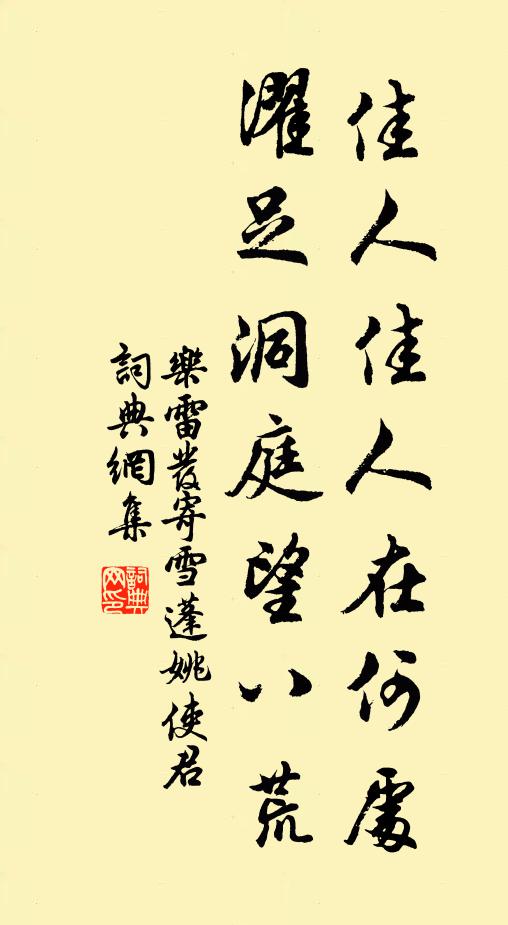 佳人佳人在何處
濯足洞庭望八荒
樂雷發寄雪蓬姚使君
詞典網集
詞典
网印